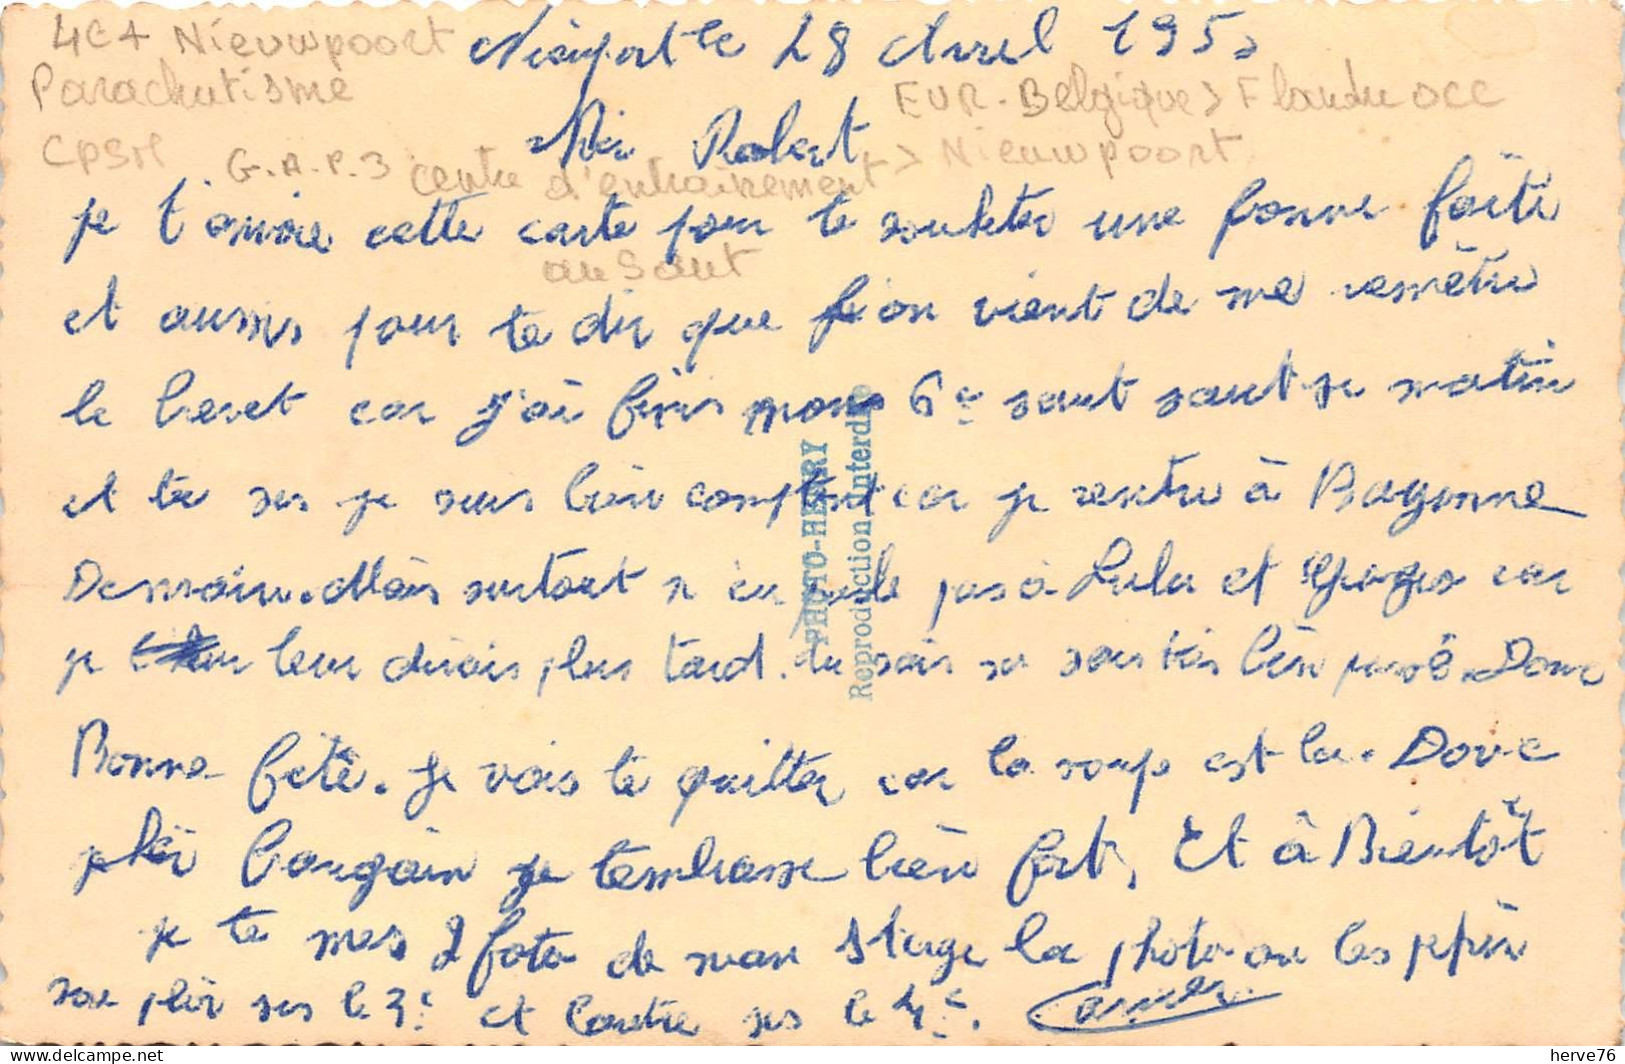 4E+ Nieuwpoort
Parachutisme
CPSM
G.A.P.3 centre d'entrainement
au Saut
EUR. Belgique > Flandre occ
> Nieuwpoort
le 28 Avril 195
Robert
je t'anvoie cette carte pour te souheter une bonne faite
et aussis pour te dir que on vient de me remêtre
le beret car j'ai finis mon 6e saut saut se matin
et tu ses je suis bien comptent car je rentre à Bayonne
Demain. Mais surtout n'en parle pas à Lulu et car
je leur dirais plus tard. tu sais se sous bien privé. Donc
Bonne fete. Je vais te quitter car la soup est la. Donc
je t'embrasse bien fort, Et à Bientôt
je te mes 2 foto de mon Stage la photo ou les
son plier ses le 3e et l'autre ses le 4e.
PHOTO-HENRY
Reproduction interdite
herve76